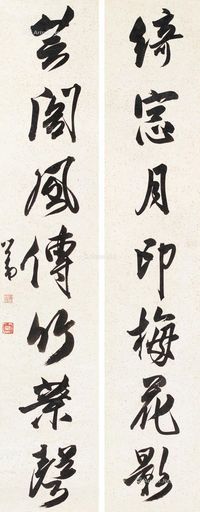 綺窓月印梅花影
芸閣風傳竹葉聲